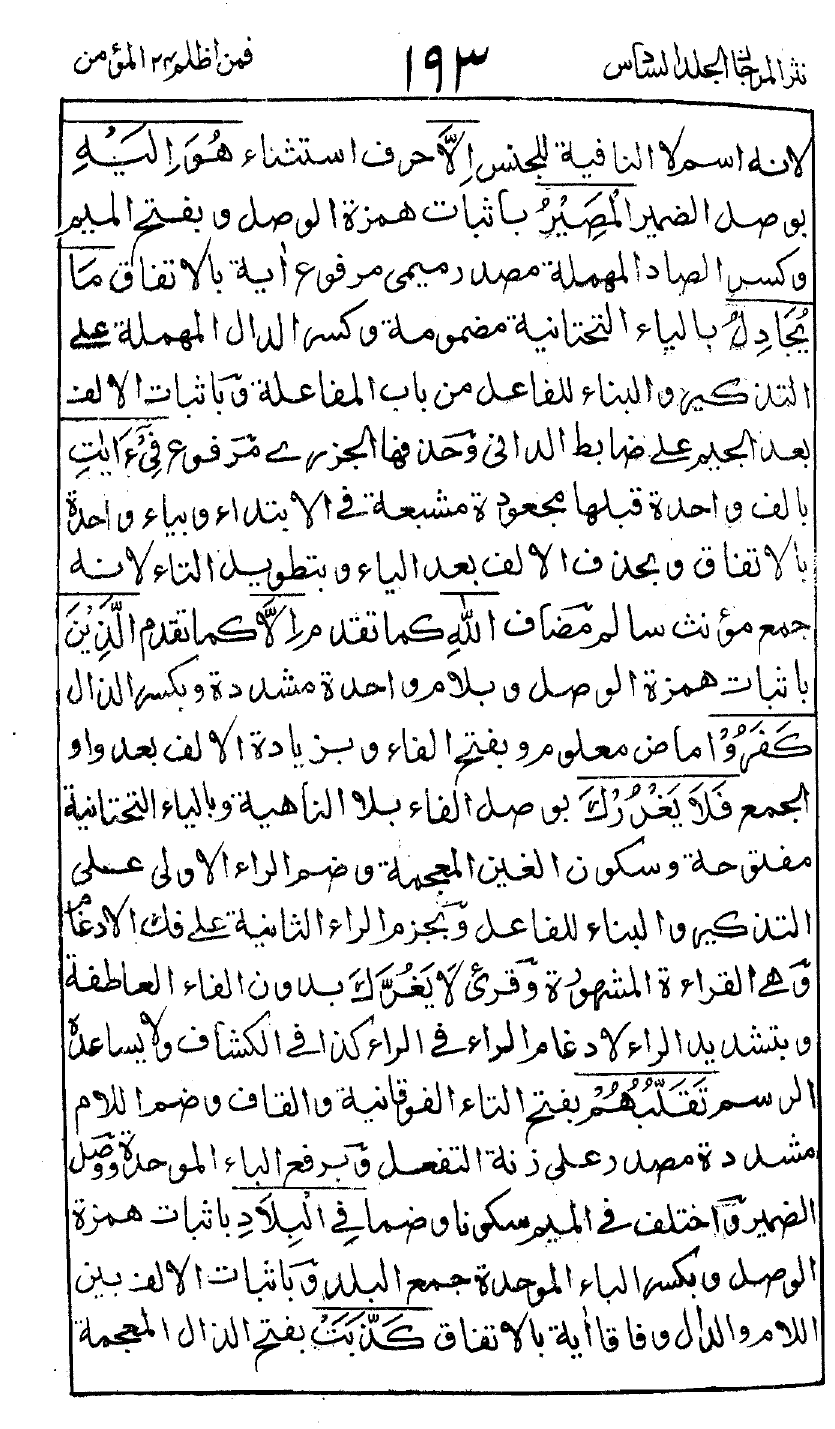 نثر المرجان الجلد السادس ١٩٣ فمن اظلم ٢٤ المؤمن
لانه اسم لا النافية للجنس اِلَّا حرف استثناء هُوَ اِلَيْهِ
بوصل الضمير الْمَصِيْرُ باثبات همزة الوصل و بفتح الميم
وكسر الصاد المهملة مصدر ميمى مرفوع أية بالاتفاق مَا
يُجَادِلُ بالياء التحتانية مضمومة وكسر الدال المهملة على
التذكير والبناء للفاعل من باب المفاعلة وَباثبات الالف
بعد الجيم على ضابط الدانى وَحذفها الجزرے مَرفوع فِىْٓ ءَايٰتِ
بالف واحدة قبلها مجعودة مشبعة فى الابتداء وبياء واحدة
بالاتفاق وبحذف الالف بعد الياء وبتطويل التاء لانه
جمع مؤنث سالم مَضاف اللّٰهِ كما تقدم اِلَّا كما تقدم الَّذِيْنَ
باثبات همزة الوصل وبلام واحدة مشددة وبكسر الذال
كَفَرُوْا ماض معلوم وبفتح الفاء وبزيادة الالف بعد واو
الجمع فَلَا يَغْرُرْكَ بوصل الفاء بلا الناهية وبالياء التحتانية
مفتوحة وسكون الغين المعجمة وضم الراء الاولى على
التذكير والبناء للفاعل وَبجزم الراء الثانية على فك الادغام
وَهى القراءة المشهورة وَقرئ لَا يَغُرَّكَ بدون الفاء العاطفة
وبتشديد الراء لادغام الراء فى الراء كذا فى الكشاف ولا يساعده
الرسم تَقَلُّبُهُمْ بفتح التاء الفوقانية والقاف وضم اللام
مشددة مصدر على زنة التفعل وَبرفع الباء الموحدة ووصل
الضمير وَاختلف فى الميم سكونا وضما فِى الْبِلَادِ باثبات همزة
الوصل وبكسر الباء الموحدة جمع البلد وَباثبات الالف بين
اللام والدال وفاقا أية بالاتفاق كَذَّبَتْ بفتح الذال المعجمة